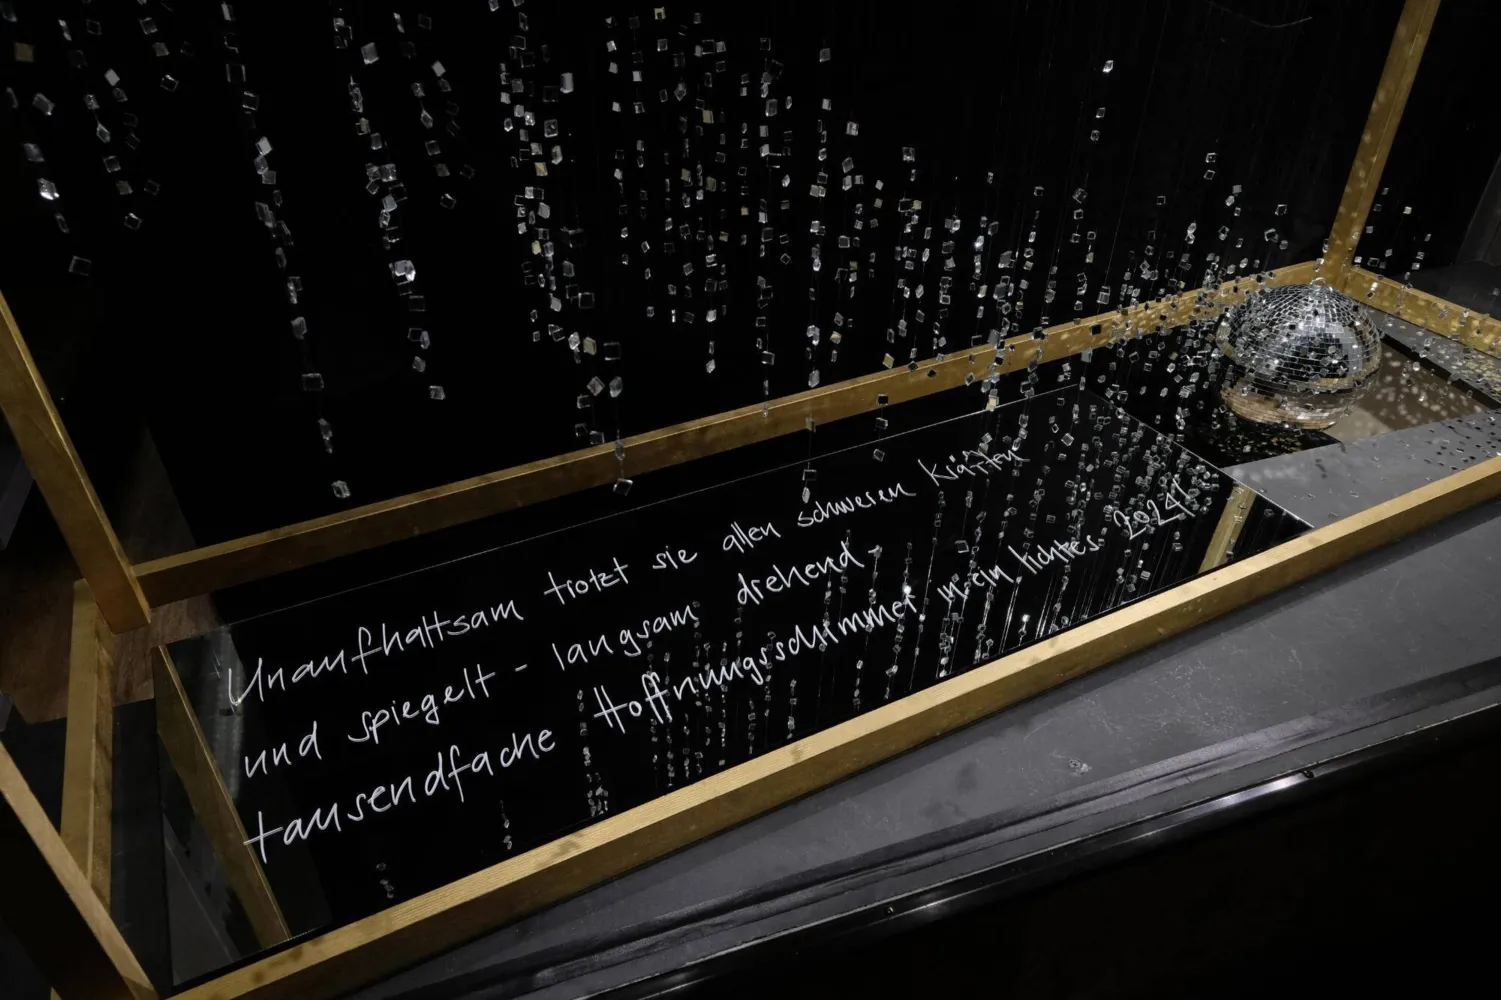 Unaufhaltsam trotzt sie allen schweren Kräften
und spiegelt - langsam drehend,
tausendfache Hoffnungsschimmer in ein lichtes 2024!